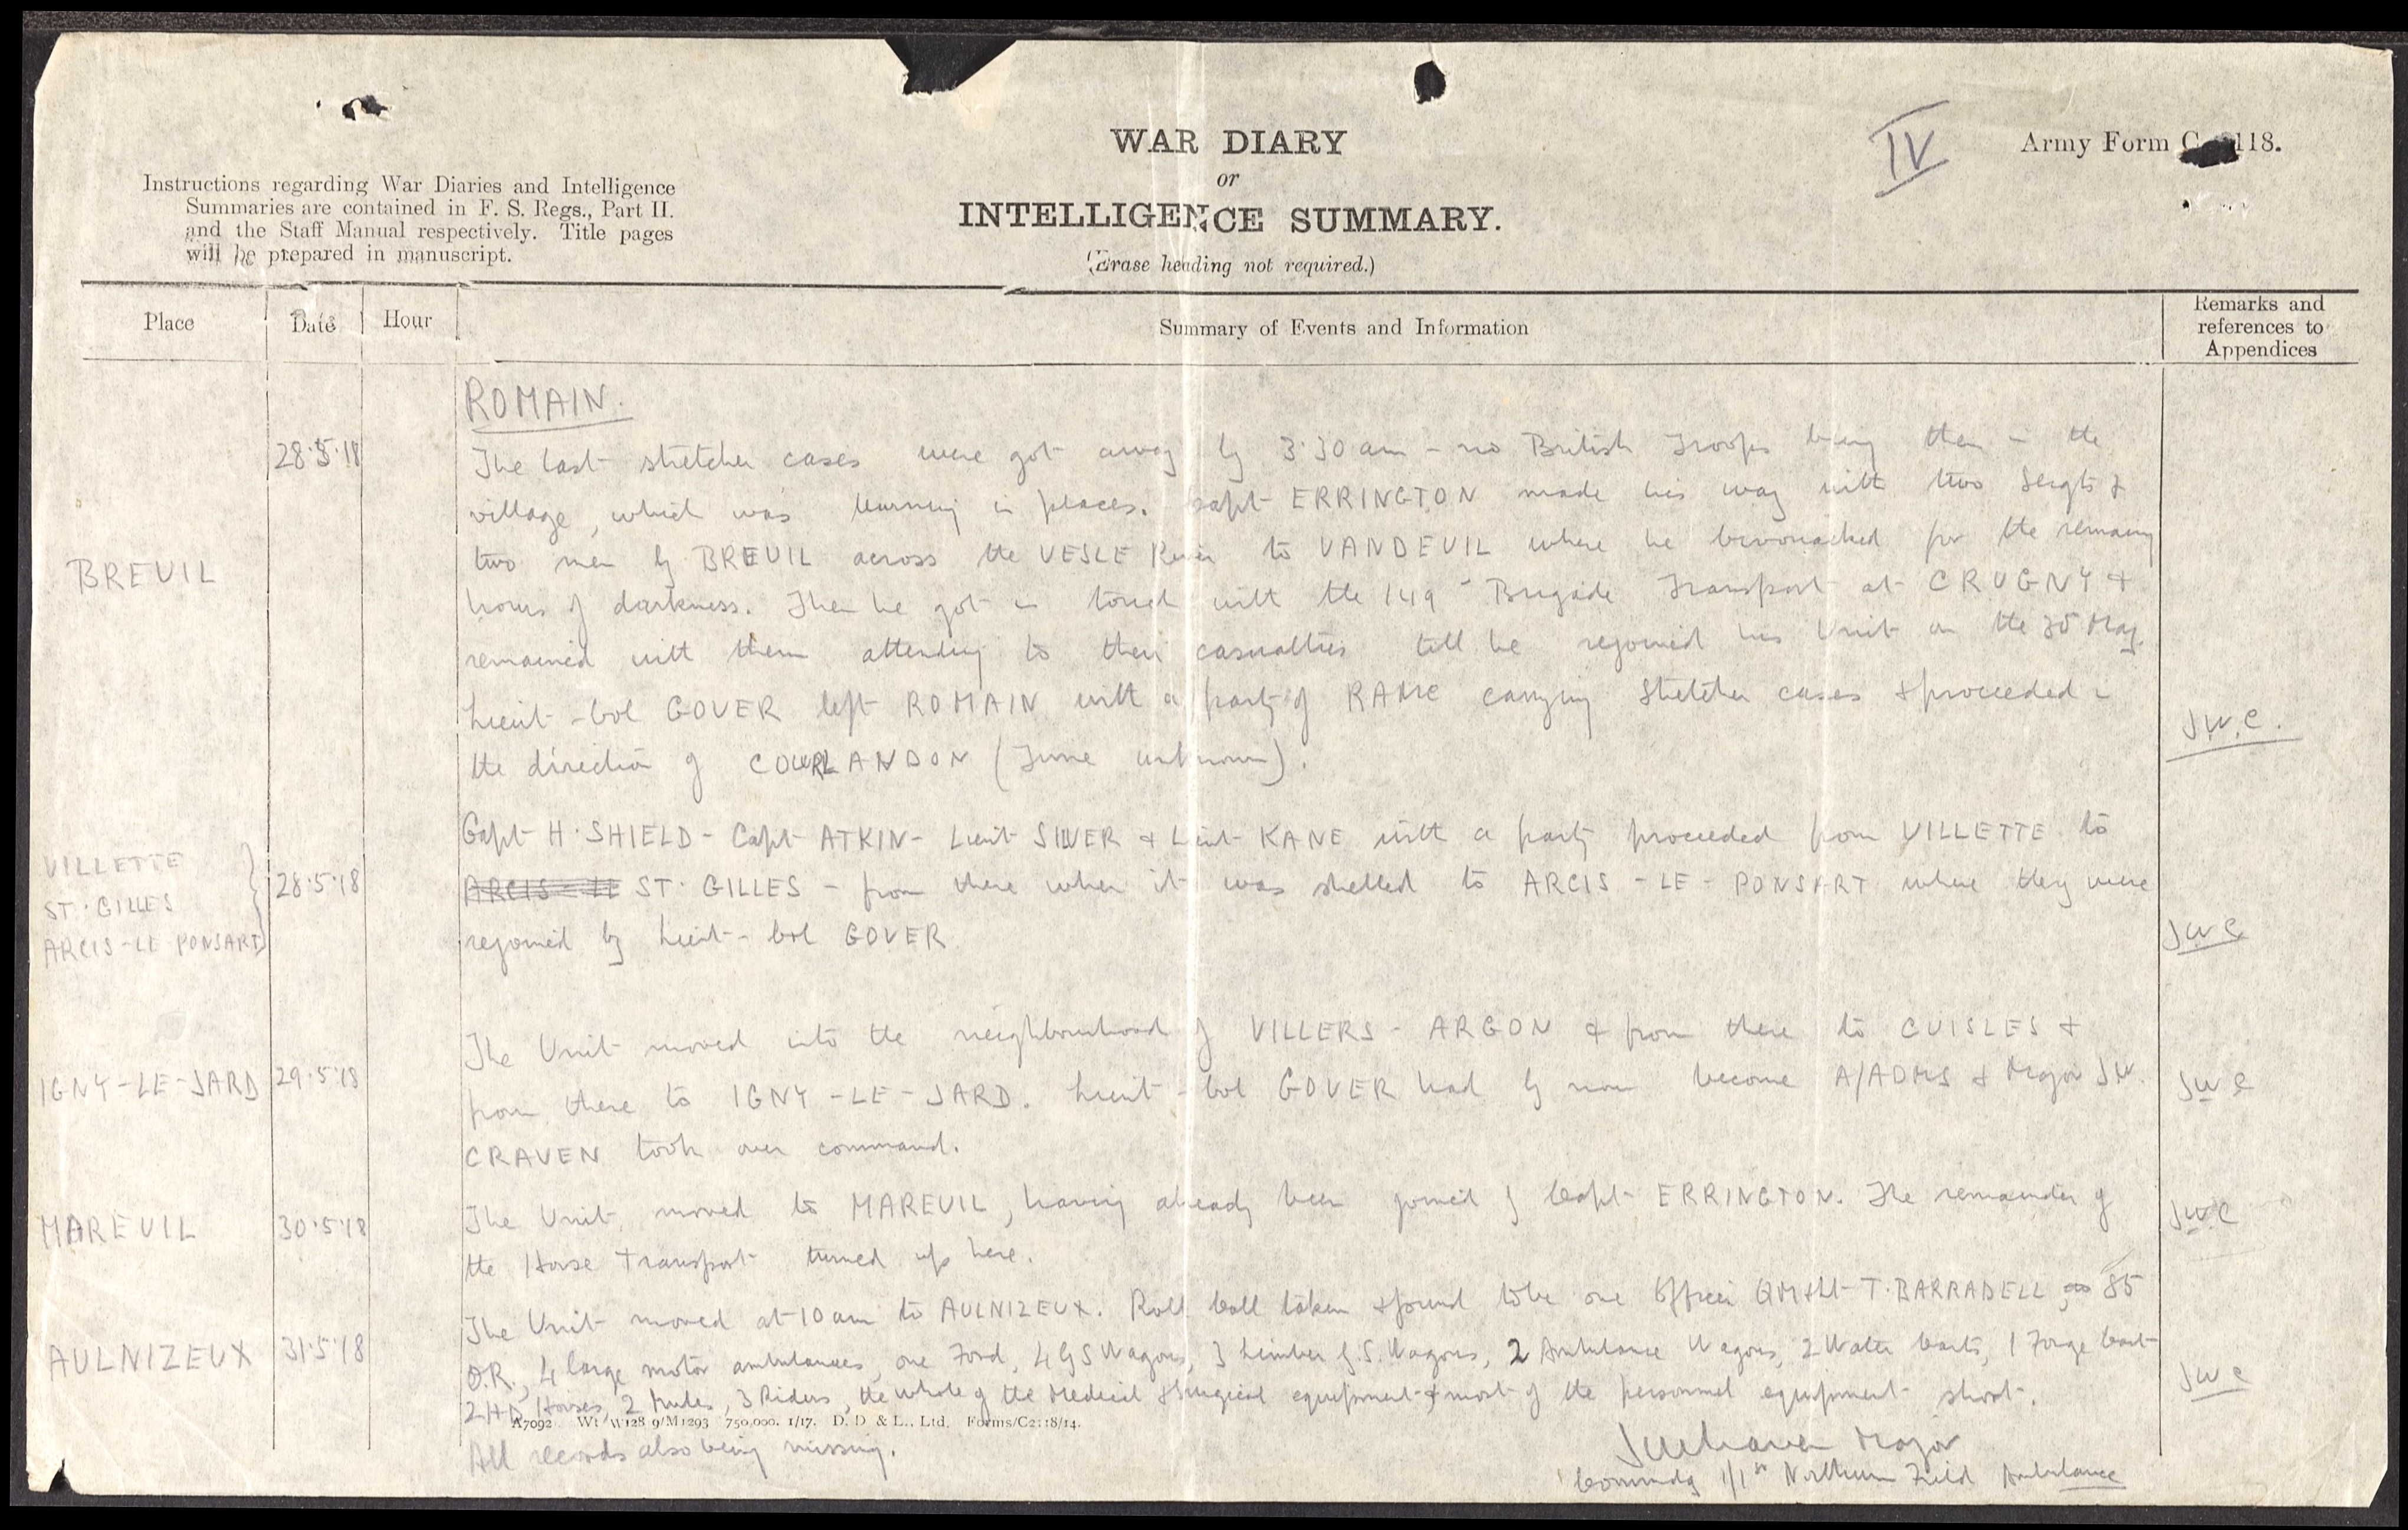 WAR DIARY
or
INTELLIGENCE SUMMARY.
(Erase heading not required.)
IV
Army Form C. 118.
Instructions regarding War Diaries and Intelligence
Summaries are contained in F. S. Regs., Part II.
and the Staff Manual respectively. Title pages
will be prepared in manuscript.
Place
Date
Hour
Summary of Events and Information
Remarks and
references to
Appendices
ROMAIN.
28·5·18
The last stretcher cases were got away by 3·30 am - no British Troops being then in the
village, which was burning in places. Capt ERRINGTON made his way with two Sergts &
BREUIL
two men by BREUIL across the VESLE River to VANDEUIL where he bivouacked for the remaing
hours of darkness. Then he got in touch with the 149 Brigade Transport at CRUGNY &
remained with them attending to their casualties till he rejoined his Unit on the 30 May.
Lieut-Col GOVER left ROMAIN with a party of RAMC carrying stretcher cases & proceeded in
the direction of COURLANDON (Time unknown).
JWC.
VILLETTE
ST. GILLES
ARCIS-LE PONSART
28·5·18
Capt H. SHIELD - Capt ATKIN - Lieut SILVER & Lieut KANE with a party proceeded from VILLETTE to
ARCIS-LE ST. GILLES - from there when it was shelled to ARCIS-LE-PONSART where they were
rejoined by Lieut-Col GOVER
JWC
IGNY-LE-JARD
29·5·18
The Unit moved into the neighbourhood of VILLERS-ARGON & from there to CUISLES &
from there to IGNY-LE-JARD. Lieut-Col GOVER had by now become A/ADMS & Major JW.
CRAVEN took over command.
JWC
MAREUIL
30·5·18
The Unit moved to MAREUIL, having already been joined by Capt ERRINGTON. The remainder of
the Horse Transport turned up here.
JWC
AULNIZEUX
31·5·18
The Unit moved at 10 am to AULNIZEUX. Roll Call taken & found to be one Officer QM & Lt T. BARRADELL, 85
O.R., 4 large motor ambulances, one Ford, 4 GS Wagons, 3 Limber G.S. Wagons, 2 Ambulance Wagons, 2 Water Carts, 1 Forge Cart
2 HD Horses, 2 Mules, 3 Riders, the whole of the Medical & Surgical equipment & most of the personnel equipment short.
All records also being missing.
JWC
A7092. Wt W128 9/M1293 750,000. 1/17. D. D & L., Ltd. Forms/C2118/14.
JWCraven Major
Commdg 1/1st Northum Field Ambulance